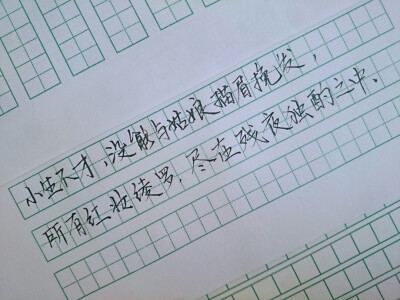 小生不才,没能与姑娘描眉挽发,
所有红妆绫罗,尽在残夜独酌之中.